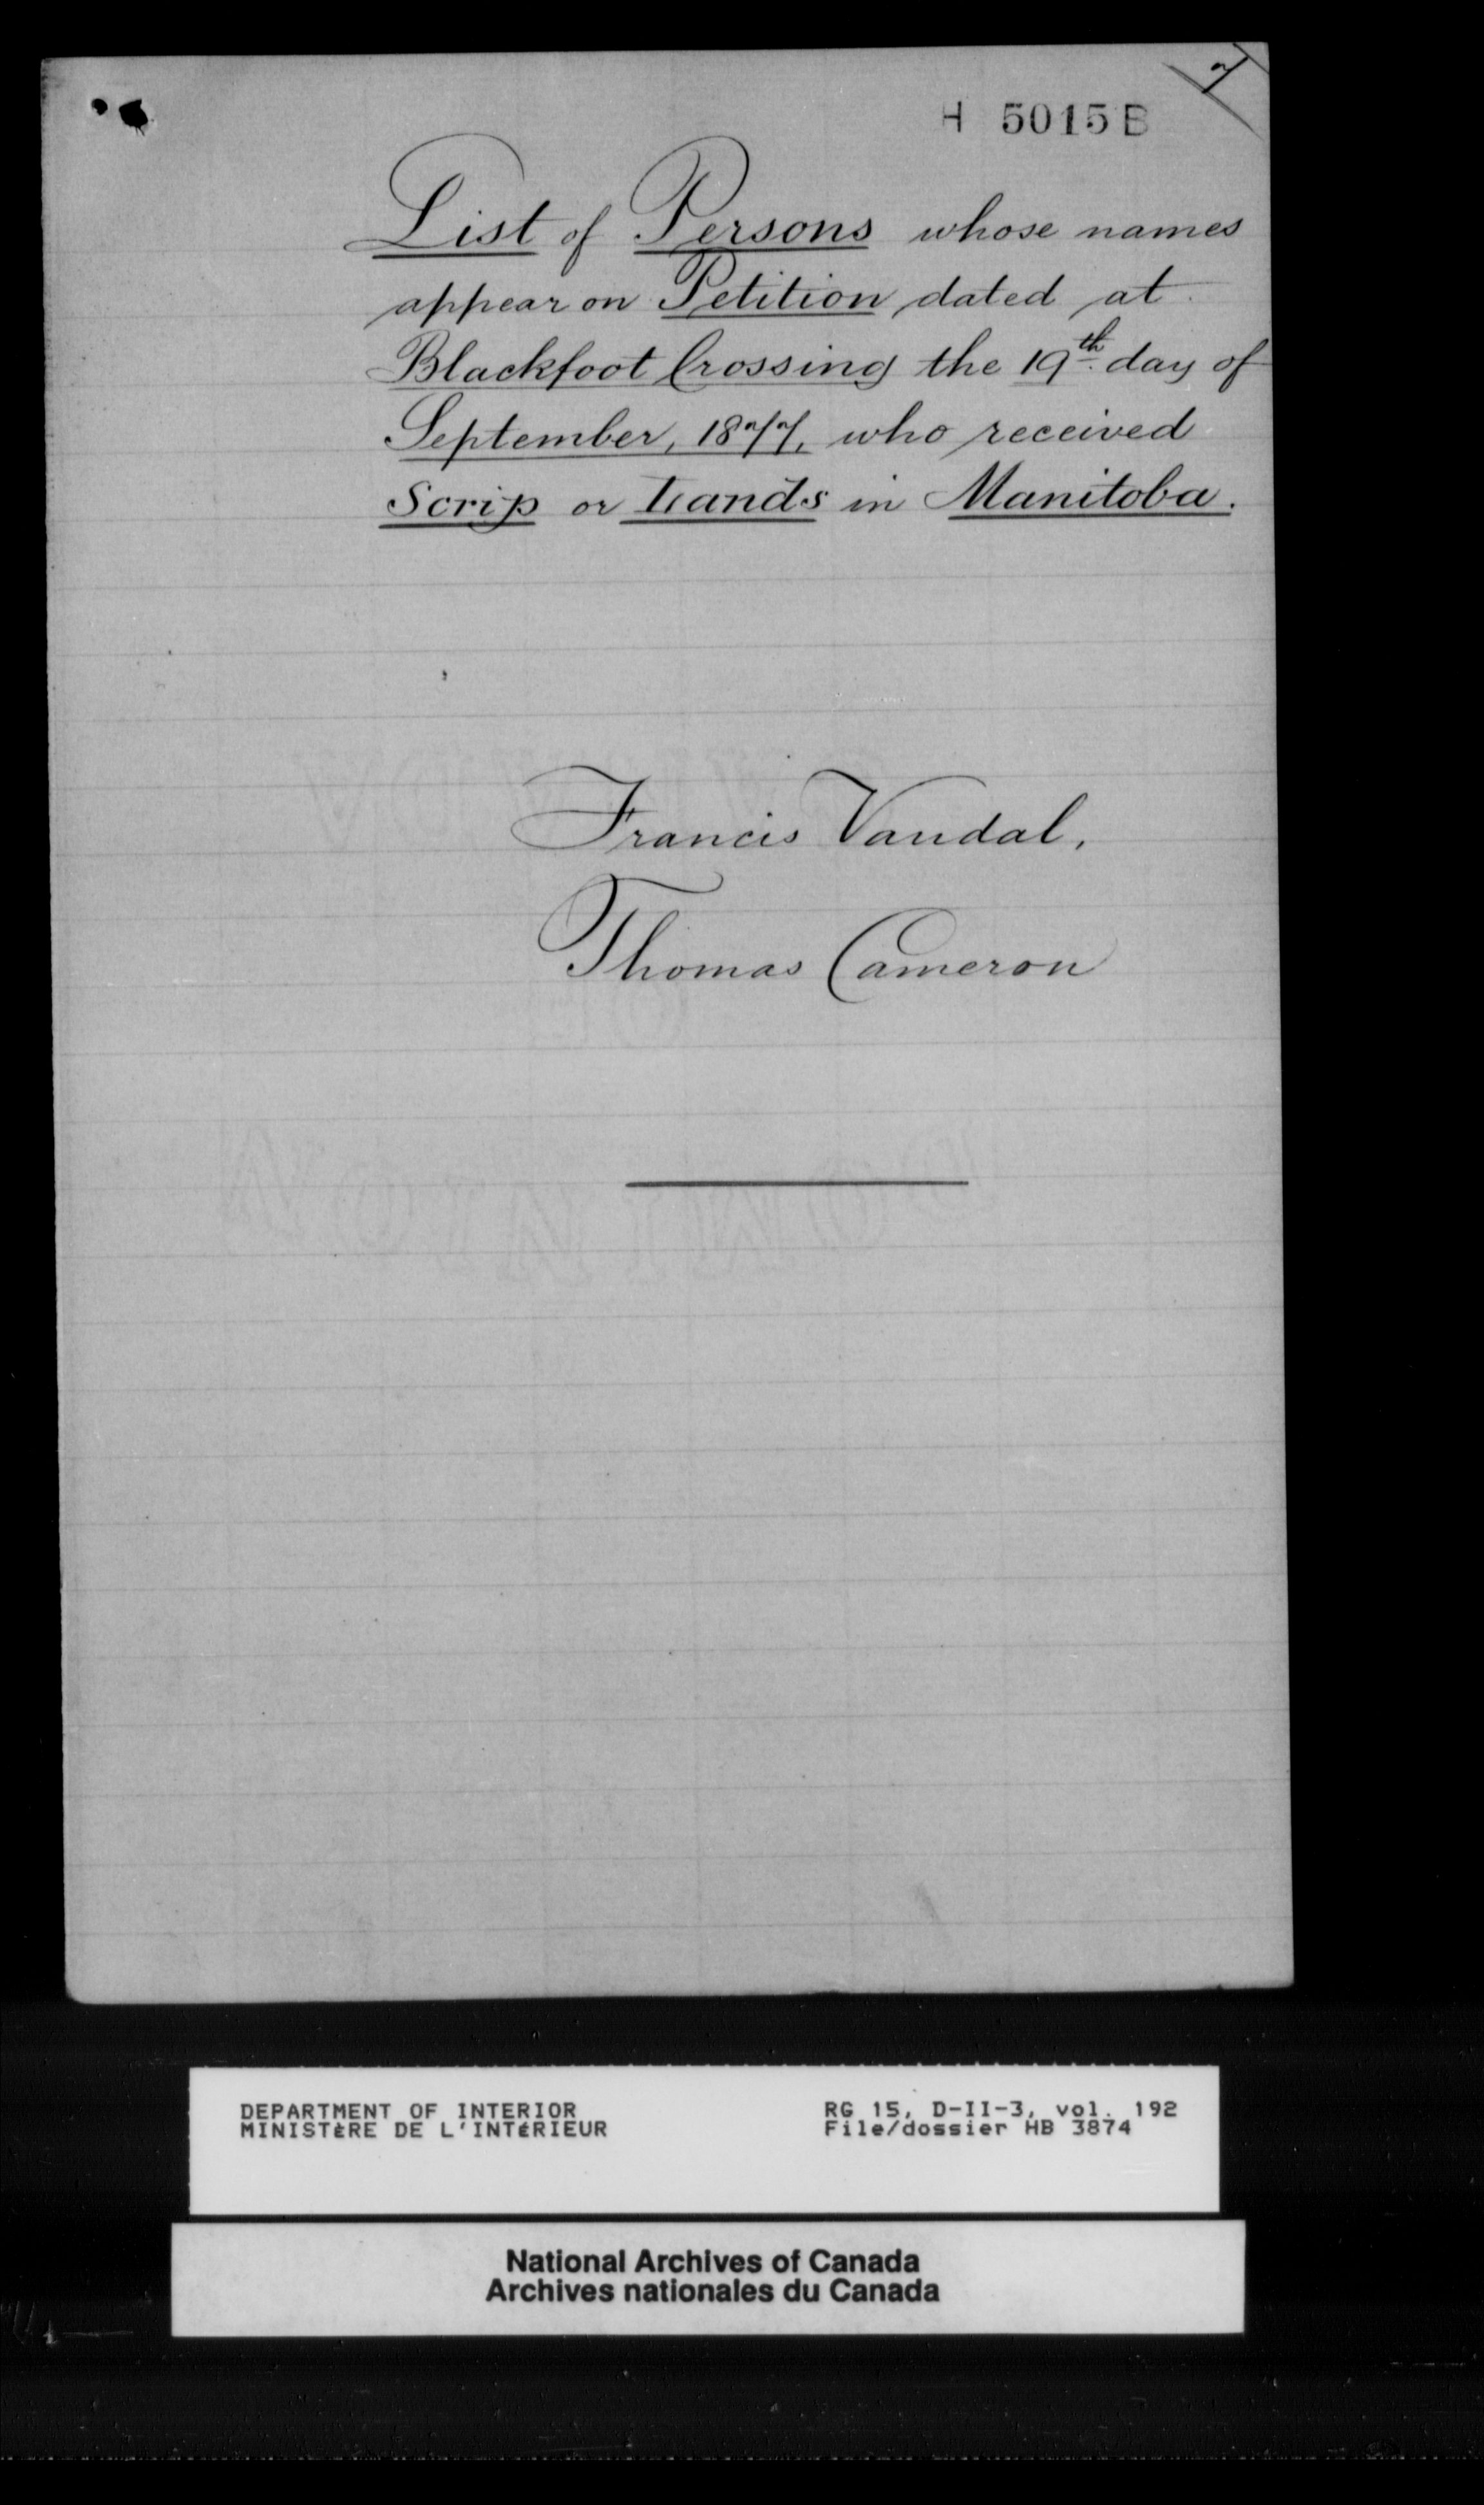 7
H 5015 B
List of Persons whose names
appear on Petition dated at
Blackfoot Crossing the 19th day of
September, 1877, who received
Scrip or Lands in Manitoba.
Francis Vandal,
Thomas Cameron
DEPARTMENT OF INTERIOR
MINISTÈRE DE L'INTÉRIEUR
RG 15, D-II-3, vol. 192
File/dossier HB 3874
National Archives of Canada
Archives nationales du Canada